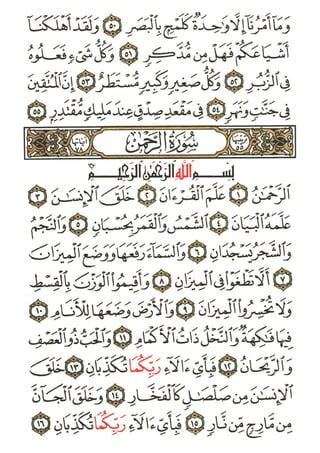 وَمَآ أَمْرُنَآ إِلَّا وَٰحِدَةٌ كَلَمْحٍۭ بِٱلْبَصَرِ ٥٠ وَلَقَدْ أَهْلَكْنَآ
أَشْيَاعَكُمْ فَهَلْ مِن مُّدَّكِرٍ ٥١ وَكُلُّ شَىْءٍ فَعَلُوهُ
فِى ٱلزُّبُرِ ٥٢ وَكُلُّ صَغِيرٍ وَكَبِيرٍ مُّسْتَطَرٌ ٥٣ إِنَّ ٱلْمُتَّقِينَ
فِى جَنَّٰتٍ وَنَهَرٍ ٥٤ فِى مَقْعَدِ صِدْقٍ عِندَ مَلِيكٍ مُّقْتَدِرٍۭ ٥٥
سُورَةُ الرَّحْمٰن
بِسْمِ ٱللَّهِ ٱلرَّحْمَٰنِ ٱلرَّحِيمِ
ٱلرَّحْمَٰنُ ١ عَلَّمَ ٱلْقُرْءَانَ ٢ خَلَقَ ٱلْإِنسَٰنَ ٣
عَلَّمَهُ ٱلْبَيَانَ ٤ ٱلشَّمْسُ وَٱلْقَمَرُ بِحُسْبَانٍ ٥ وَٱلنَّجْمُ
وَٱلشَّجَرُ يَسْجُدَانِ ٦ وَٱلسَّمَآءَ رَفَعَهَا وَوَضَعَ ٱلْمِيزَانَ
٧ أَلَّا تَطْغَوْا۟ فِى ٱلْمِيزَانِ ٨ وَأَقِيمُوا۟ ٱلْوَزْنَ بِٱلْقِسْطِ
وَلَا تُخْسِرُوا۟ ٱلْمِيزَانَ ٩ وَٱلْأَرْضَ وَضَعَهَا لِلْأَنَامِ ١٠
فِيهَا فَٰكِهَةٌ وَٱلنَّخْلُ ذَاتُ ٱلْأَكْمَامِ ١١ وَٱلْحَبُّ ذُو ٱلْعَصْفِ
وَٱلرَّيْحَانُ ١٢ فَبِأَىِّ ءَالَآءِ رَبِّكُمَا تُكَذِّبَانِ ١٣ خَلَقَ
ٱلْإِنسَٰنَ مِن صَلْصَٰلٍ كَٱلْفَخَّارِ ١٤ وَخَلَقَ ٱلْجَآنَّ
مِن مَّارِجٍ مِّن نَّارٍ ١٥ فَبِأَىِّ ءَالَآءِ رَبِّكُمَا تُكَذِّبَانِ ١٦